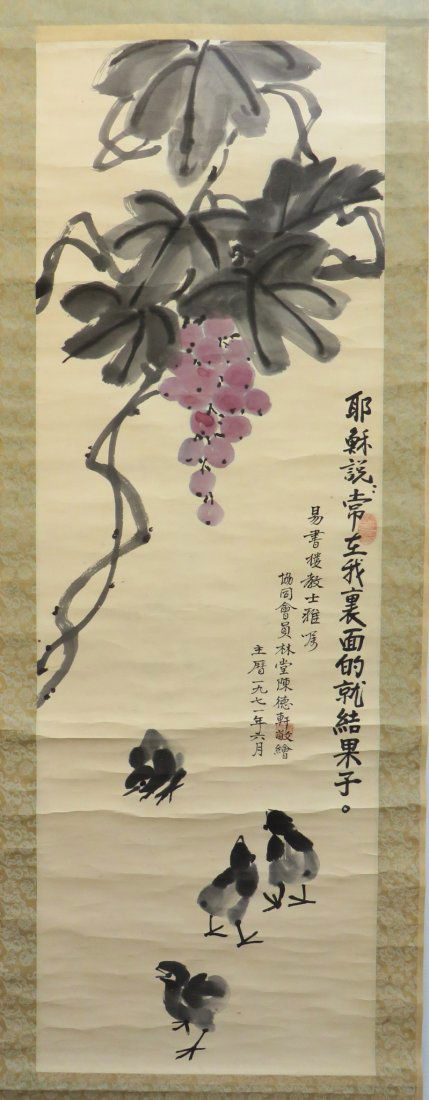 耶穌說常在我裏面的就結果子。
易書樸教士雅嘱
協同會員林堂陳德軒敬繪
主曆一九七一年六月